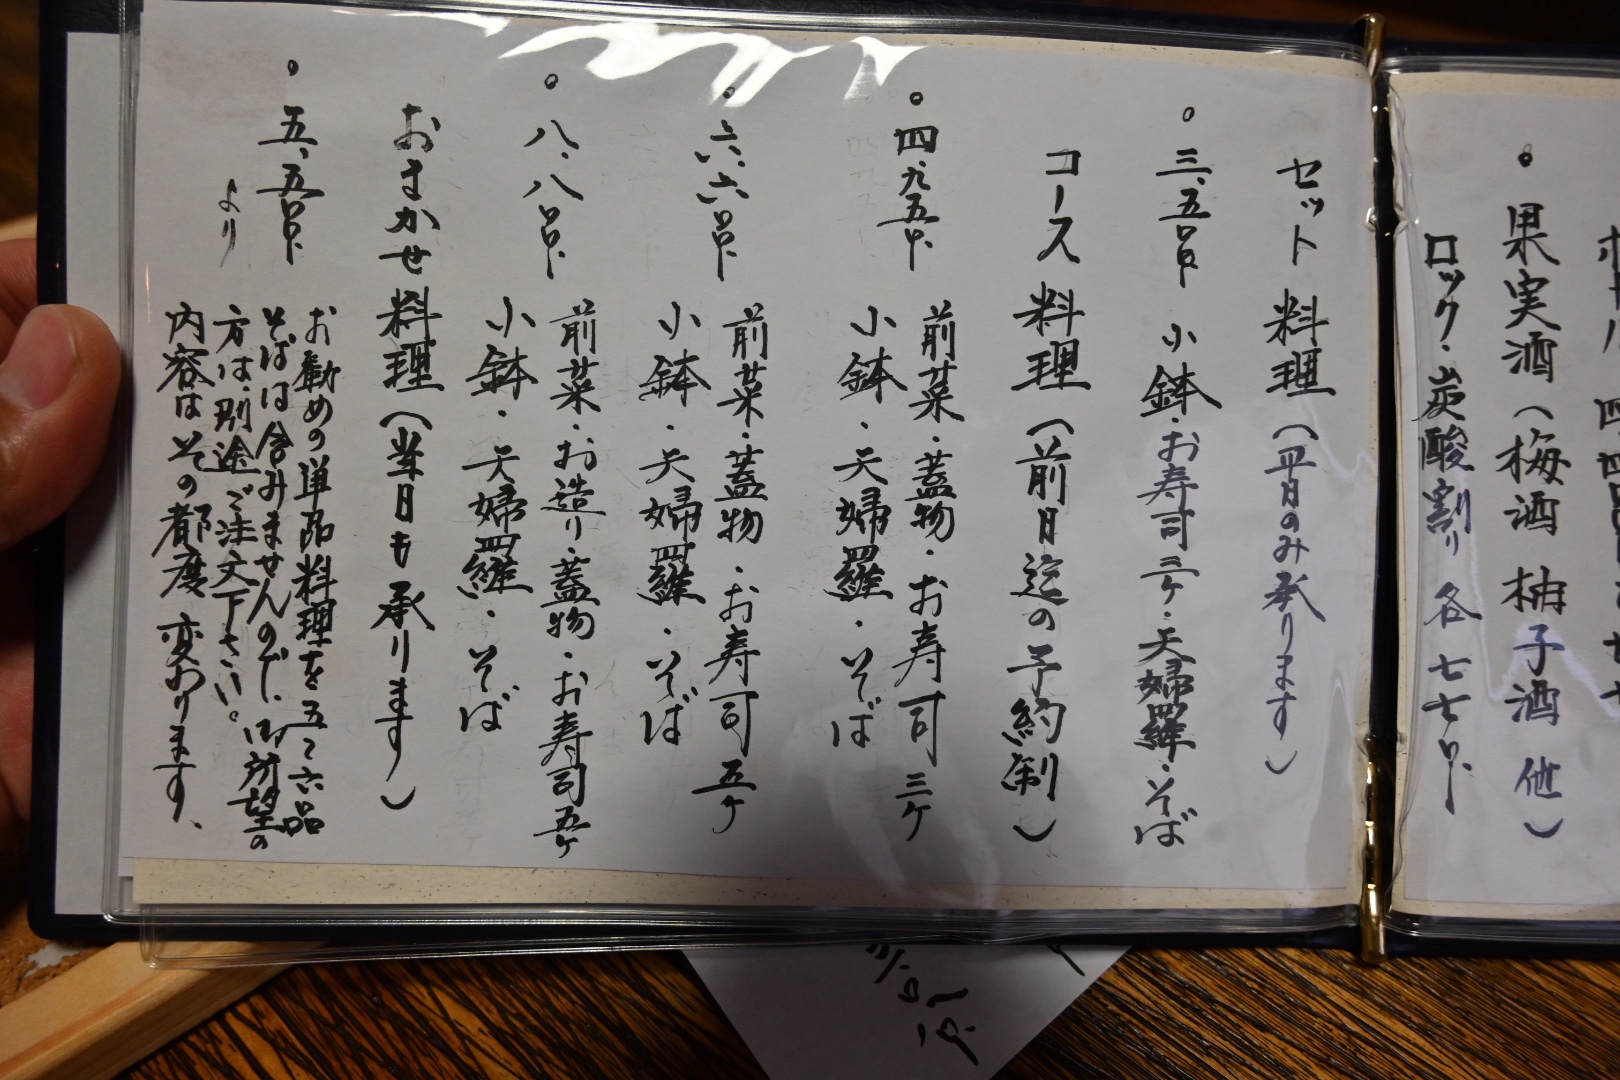 果実酒（梅酒 柚子酒 他）
ロック・炭酸割り 各 七七〇、
セット 料理（平日のみ承ります）
三、五〇〇、 小鉢・お寿司三ヶ・天婦羅・そば
コース 料理（前日迄の予約制）
四、九五〇、 前菜・蓋物・お寿司三ヶ
小鉢・天婦羅・そば
六、六〇〇、 前菜・蓋物・お寿司五ヶ
小鉢・天婦羅・そば
八、八〇〇、 前菜・お造り・蓋物・お寿司五ヶ
小鉢・天婦羅・そば
おまかせ 料理（当日も承ります）
五、五〇〇、より
お勧めの単品料理を五〜六品
そばは含みませんので、御所望の
方は、別途ご注文下さい。
内容はその都度変わります、